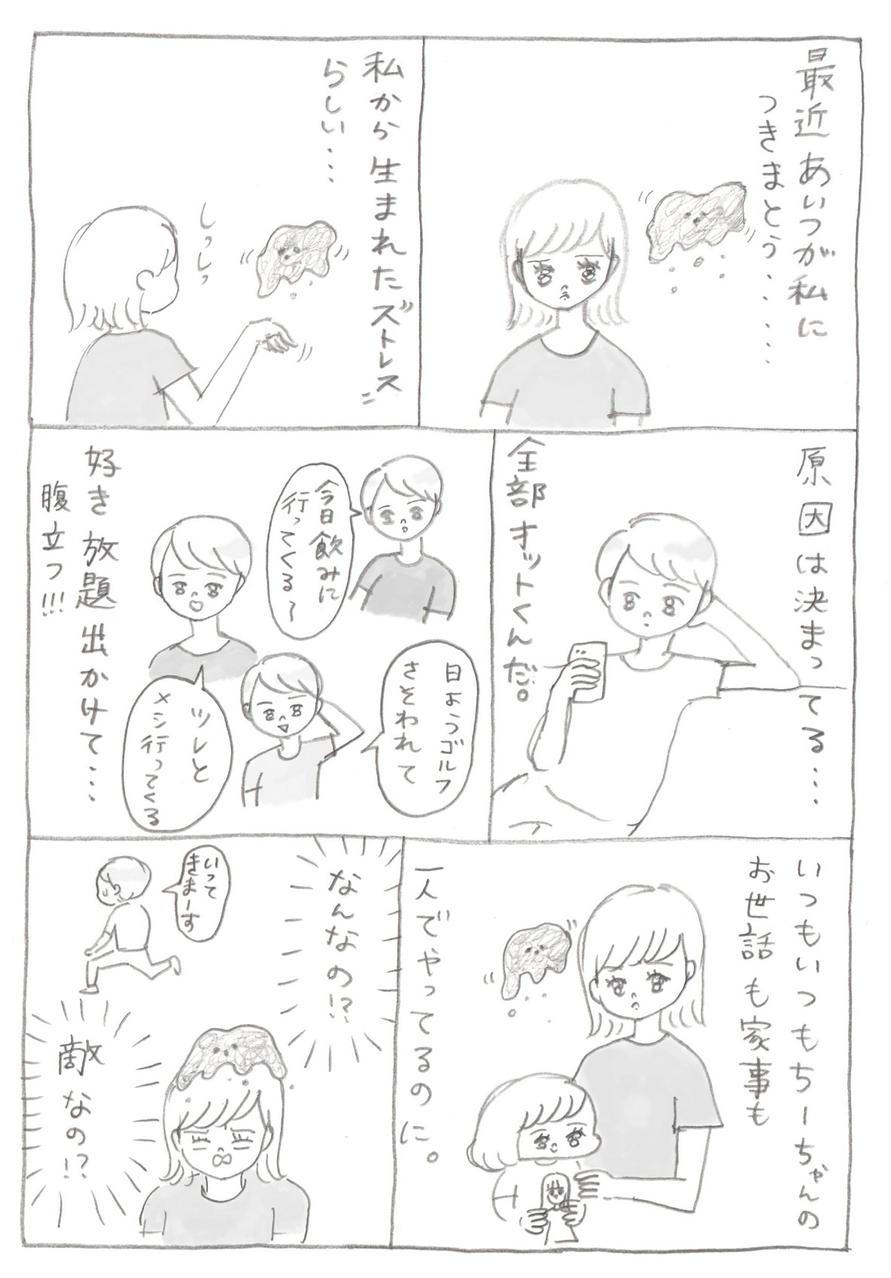 最近あいつが私に
つきまとう......
私から生まれた"ストレス"
らしい...
しっしっ
原因は決まってる...
全部オットくんだ。
今日飲みに
行ってくる〜
ツレと
メシ行ってくる
日ようゴルフ
さそわれて
好き放題出かけて...
腹立つ!!!
いつもいつもちーちゃんの
お世話も家事も
一人でやってるのに。
いって
きまーす
なんなの!?
敵なの!?